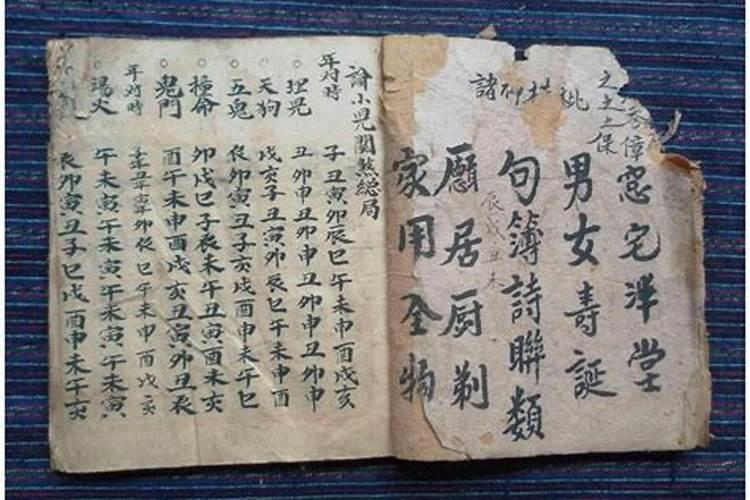 男女壽誕
句簿詩聯類
辰戌丑未
居厨剃
家用全物
論小児関煞總局
年対時 子丑寅卯辰巳午未申酉戌亥
埋児 丑卯申丑卯申丑卯申丑卯申
天狗 戌亥子丑寅卯辰巳午未申酉
五鬼 辰卯寅丑子亥戌酉申未午巳
撞命 卯戌巳子辰未午丑寅酉未亥
鬼門 酉午未申酉戌亥丑寅卯丑辰
年対時 子丑寅卯辰巳午未申酉戌亥
湯火 午未寅午未寅午未寅午未寅
辰卯寅丑子巳戌酉申未午亥